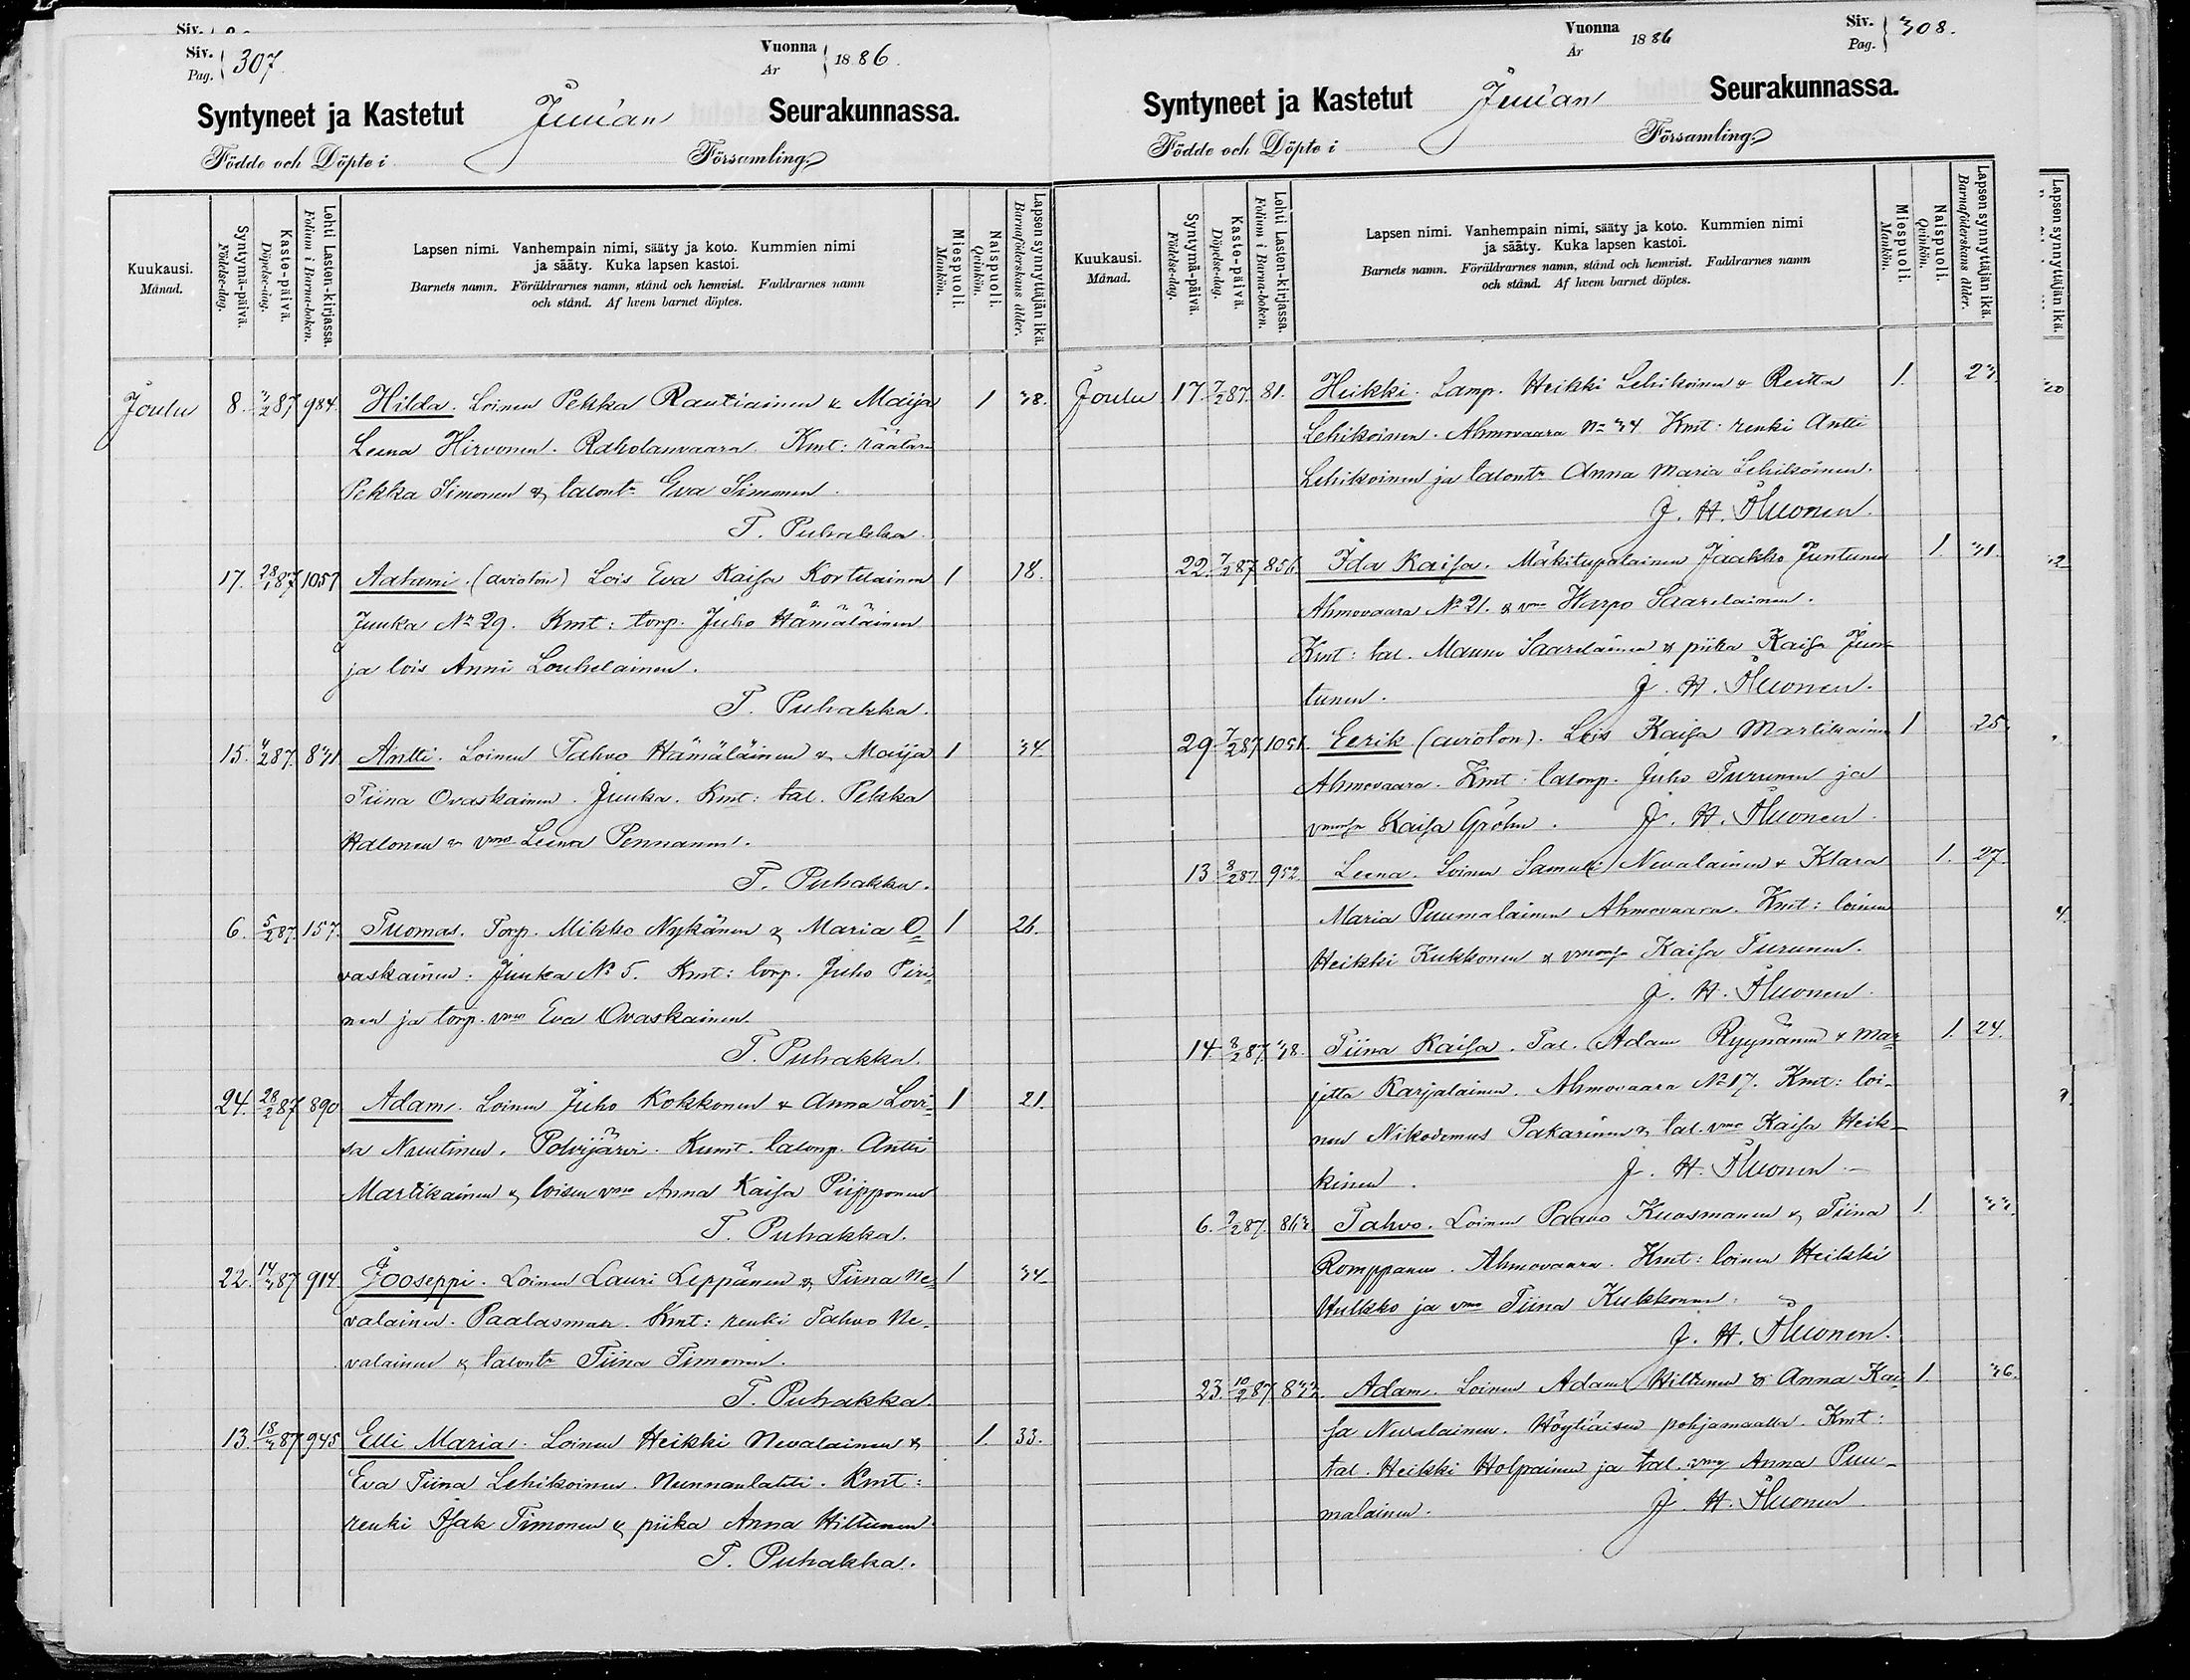 Siv.
Siv.
Pag. 307.
Vuonna
År 1886.
Syntyneet ja Kastetut Juuan Seurakunnassa.
Födde och Döpte i Församling.
Kuukausi.
Månad.
Syntymä-päivä.
Födelse-dag.
Kaste-päivä.
Döpelse-dag.
Lehti Lasten-kirjassa.
Folium i Barna-boken.
Lapsen nimi. Vanhempain nimi, sääty ja koto. Kummien nimi
ja sääty. Kuka lapsen kastoi.
Barnets namn. Föräldrarnes namn, stånd och hemvist. Faddrarnes namn
och stånd. Af hvem barnet döptes.
Miespuoli.
Mankön.
Naispuoli.
Qvinkön.
Lapsen synnyttäjän ikä.
Barnaföderskans ålder.
Joulu 8. 3/2 87 984. Hilda. Loinen Pekka Rautiainen & Maija 1 38.
Leena Hirvonen. Raholanvaara. Kmt: räätäri
Pekka Simonen & talontr Eva Simonen.
T. Puhakka.
17. 28/1 87 1057 Aatami. (avioton) Lois Eva Kaisa Kortelainen 1 18.
Juuka No 29. Kmt: torp. Juho Hämäläinen
ja lois Anni Louhelainen.
T. Puhakka.
15. 4/2 87. 831 Antti. Loinen Tahvo Hämäläinen & Maija 1 34.
Tiina Ovaskainen. Juuka. Kmt: tal. Pekka
Halonen & vmo Leena Pennanen.
T. Puhakka.
6. 5/2 87. 157. Tuomas. Torp. Mikko Nykänen & Maria O= 1 26.
vaskainen. Juuka No 5. Kmt: torp. Juho Piri=
nen ja torp. vmo Eva Ovaskainen.
T. Puhakka.
24. 28/2 87 890 Adam. Loinen Juho Kokkonen & Anna Lovi= 1 21.
sa Nuutinen. Polvijärvi. Kumt. talonp. Antti
Martikainen & loisen vmo Anna Kaisa Piipponen
T. Puhakka.
22. 14/3 87 914. Jooseppi. Loinen Lauri Leppänen & Tiina Ne= 1 34.
valainen. Paalasmaa. Kmt: renki Tahvo Ne=
valainen & talontr Tiina Timonen.
T. Puhakka.
13. 18/3 87 945 Elli Maria. Loinen Heikki Nevalainen & 1. 33.
Eva Tiina Lehikoinen. Nunnanlahti. Kmt:
renki Isak Timonen & piika Anna Hiltunen.
T. Puhakka.
Vuonna
År 1886
Siv.
Pag. 308.
Syntyneet ja Kastetut Juuan Seurakunnassa.
Födde och Döpte i Församling.
Kuukausi.
Månad.
Syntymä-päivä.
Födelse-dag.
Kaste-päivä.
Döpelse-dag.
Lehti Lasten-kirjassa.
Folium i Barna-boken.
Lapsen nimi. Vanhempain nimi, sääty ja koto. Kummien nimi
ja sääty. Kuka lapsen kastoi.
Barnets namn. Föräldrarnes namn, stånd och hemvist. Faddrarnes namn
och stånd. Af hvem barnet döptes.
Miespuoli.
Mankön.
Naispuoli.
Qvinkön.
Lapsen synnyttäjän ikä.
Barnaföderskans ålder.
Lapsen synnyttäjän ikä.
Joulu 17. 7/2 87. 81. Heikki. Lamp. Heikki Lehikoinen & Reitta 1. 23.
Lehikoinen. Ahmovaara No 34 Kmt: renki Antti
Lehikoinen ja talontr Anna Maria Lehikoinen.
J. H. Ihuonen.
22. 7/2 87 856 Ida Kaisa. Mäkitupalainen Jaakko Juntunen 1 31.
Ahmovaara No 21. & vmo Harpo Saarelainen.
Kmt: tal. Mauno Saarelainen & piika Kaisa Jun=
tunen. J. H. Ihuonen.
29. 7/2 87 1051. Eerik (avioton). Lois Kaisa Martikainen 1 25.
Ahmovaara. Kmt: talonp. Juho Turunen ja
vmonsa Kaisa Gröhn. J. H. Ihuonen.
13 8/2 87. 952. Leena. Loinen Samuli Nevalainen & Klara 1. 27.
Maria Puumalainen Ahmovaara. Kmt: loinen
Heikki Kukkonen & vmonsa Kaisa Turunen.
J. H. Ihuonen.
14. 8/2 87 38. Tiina Kaisa. Tal. Adam Ryynänen & Mar= 1. 24.
jetta Karjalainen. Ahmovaara No 17. Kmt: loi-
nen Nikodemus Pakarinen & tal. vmo Kaisa Heik-
kinen. J. H. Ihuonen.
6. 9/2 87. 863 Tahvo. Loinen Paavo Kuosmanen & Tiina 1. 33.
Romppanen. Ahmovaara. Kmt: loinen Heikki
Hulkko ja vmo Tiina Kukkonen.
J. H. Ihuonen.
23. 10/2 87 832. Adam. Loinen Adam Hiltunen & Anna Kai 1. 36.
sa Nevalainen. Höytiäisen pohjamaalla. Kmt:
tal. Heikki Holpainen ja tal. vmo Anna Puu-
malainen. J. H. Ihuonen